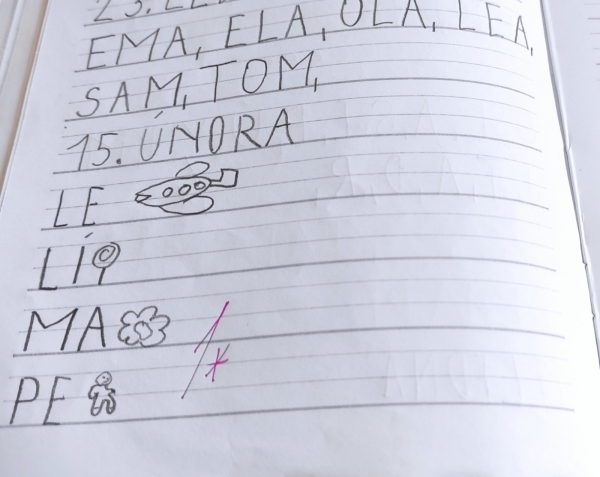 EMA, ELA, OLA, LEA,
SAM, TOM,
15. ÚNORA
LE
LÍ
MA
PE
1*